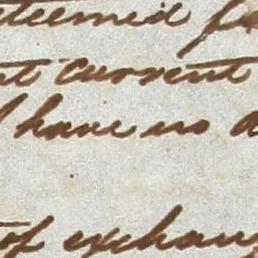 teemed fo
nt current
have no a
of exchang